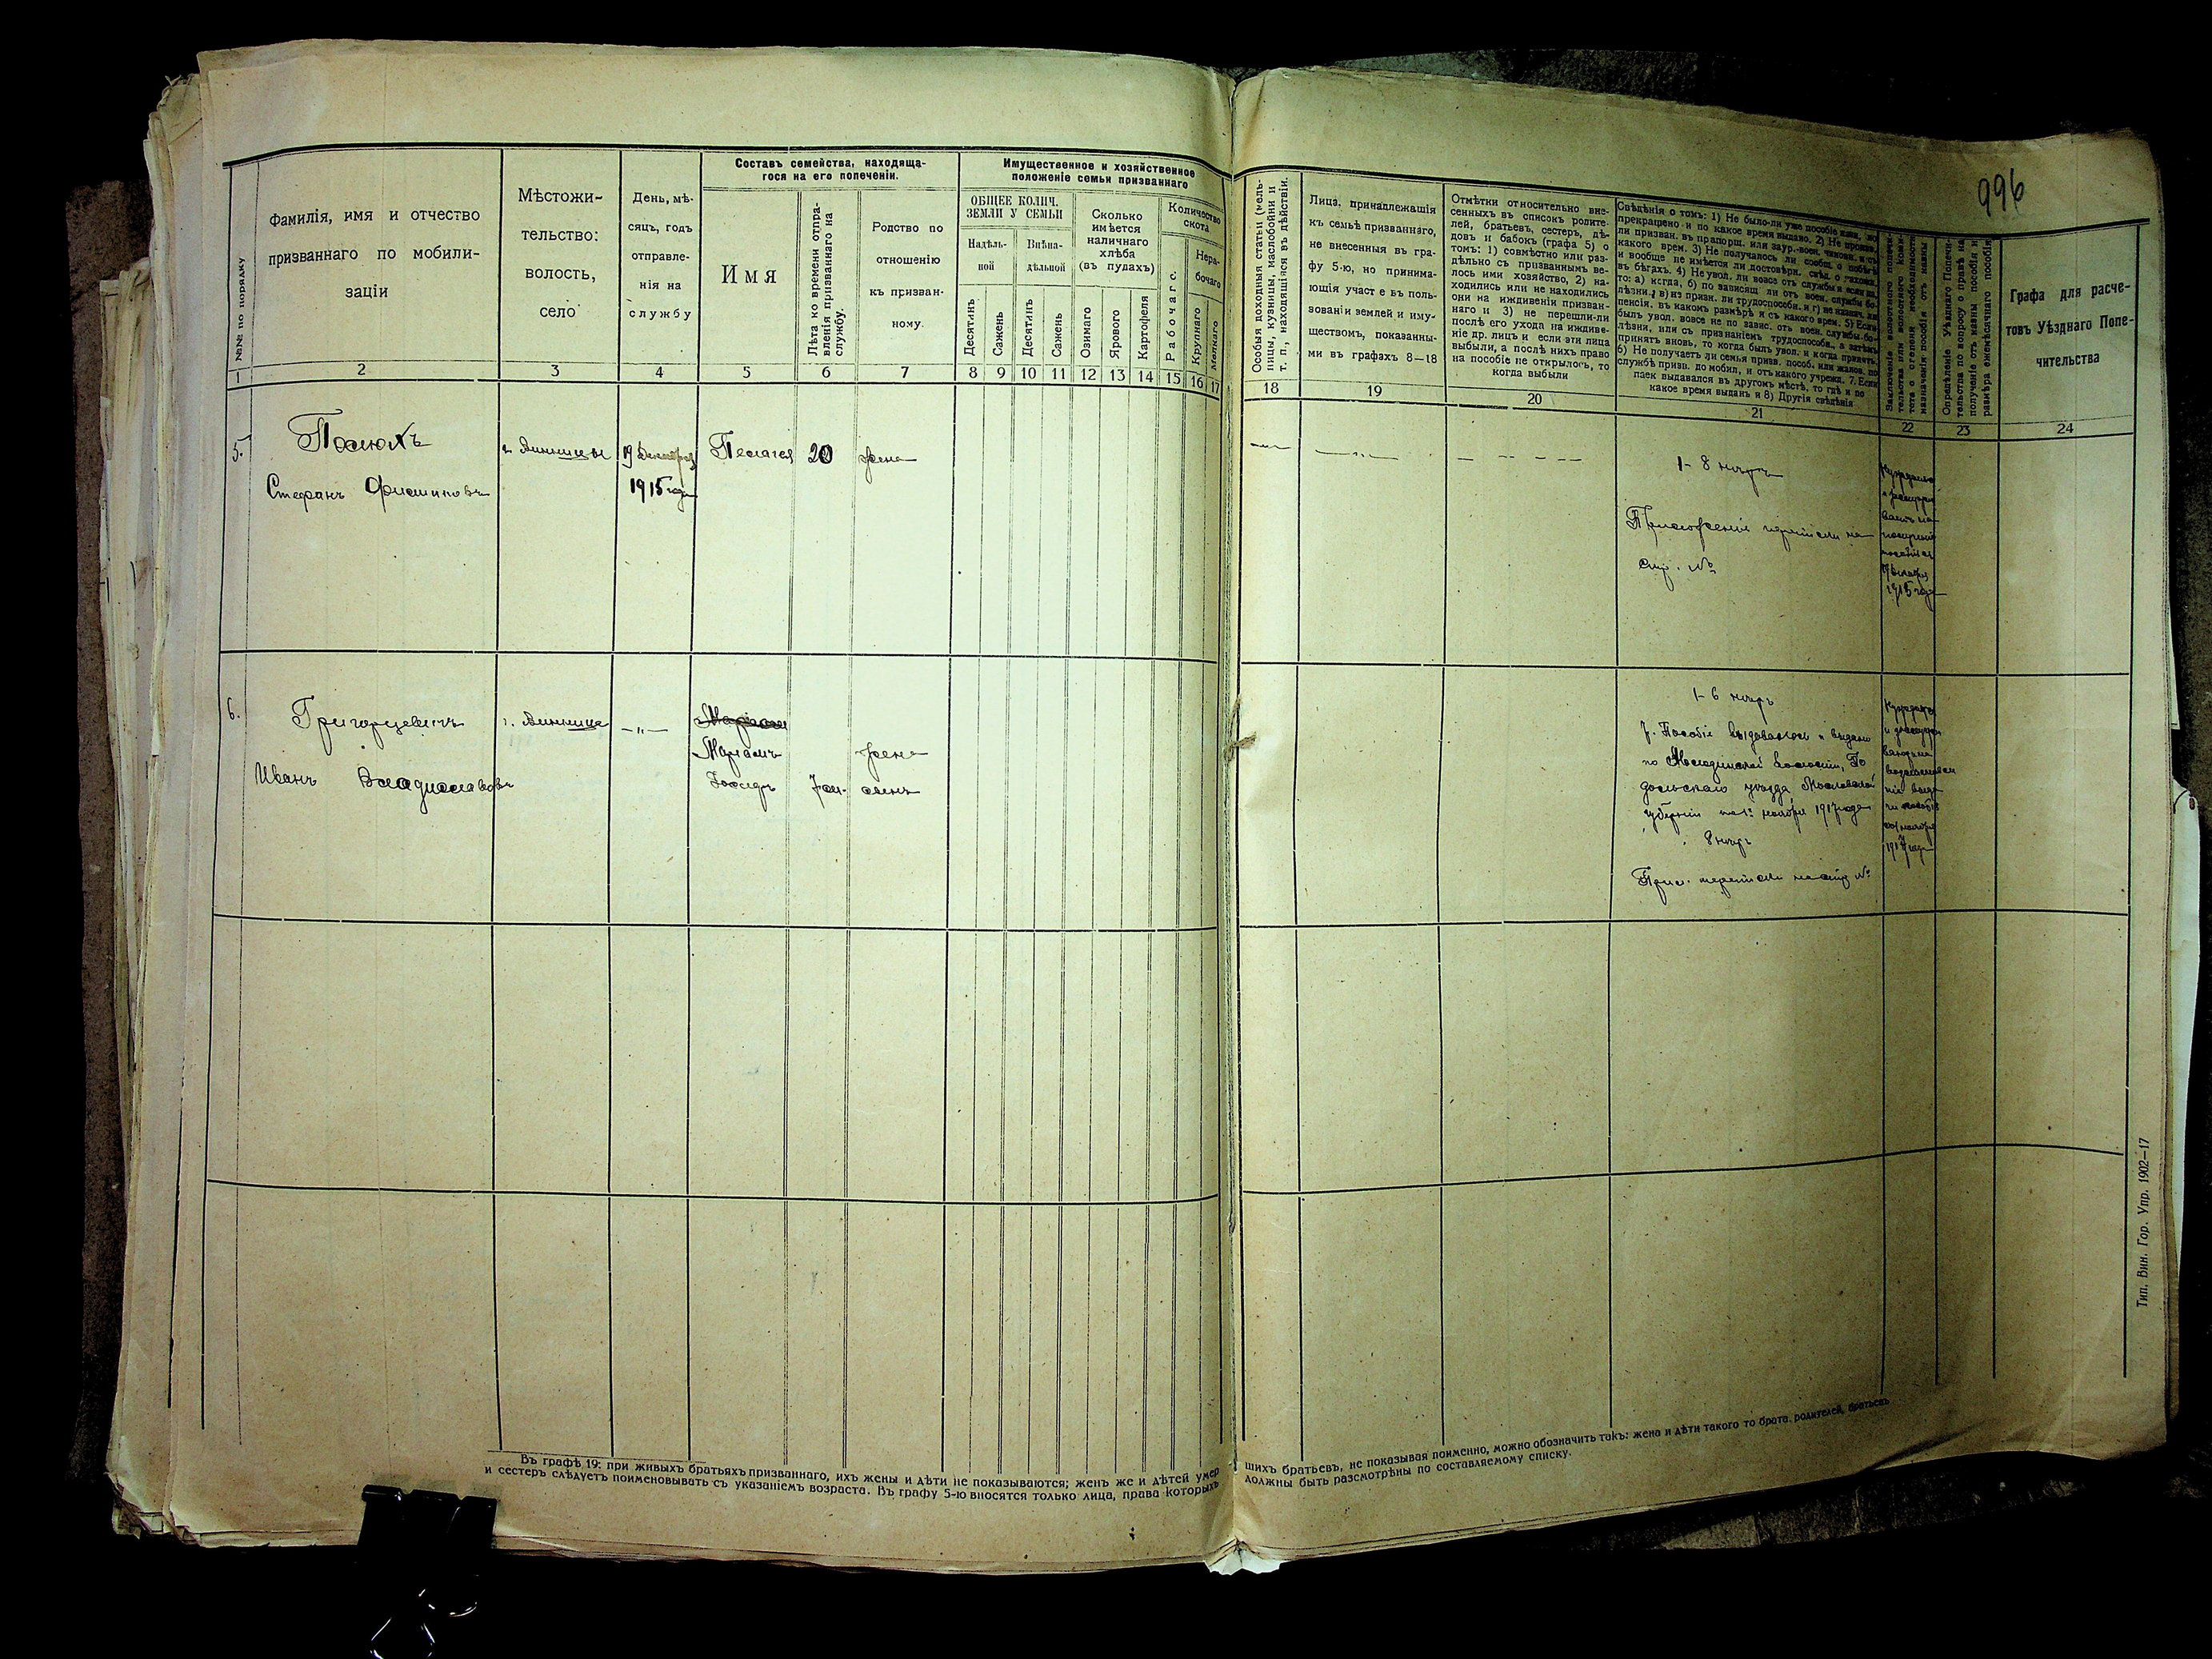 996
№№ по порядку
Фамилія, имя и отчество
призваннаго по мобили-
заціи
Мѣстожи-
тельство:
волость,
село
День, мѣ-
сяцъ, годъ
отправле-
нія на
службу
Составъ семейства, находяща-
гося на его попеченіи.
Имя
Лѣта ко времени отпра-
вленія призваннаго на
службу.
Родство по
отношенію
къ призван-
ному.
Имущественное и хозяйственное
положеніе семьи призваннаго
ОБЩЕЕ КОЛИЧ.
ЗЕМЛИ У СЕМЬИ
Надѣль-
ной
Внѣна-
дѣльной
Десятинъ
Сажень
Десятинъ
Сажень
Сколько
имѣется
наличнаго
хлѣба
(въ пудахъ)
Озимаго
Ярового
Картофеля
Количество
скота
Рабочаго
Нера-
бочаго
Крупнаго
Мелкаго
Особыя доходныя статьи (мель-
ницы, кузницы, маслобойни и
т. п., находящіяся въ дѣйствіи.
Лица, принадлежащія
къ семьѣ призваннаго,
не внесенныя въ гра-
фу 5-ю, но принима-
ющія участ е въ поль-
зованіи землей и иму-
ществомъ, показанны-
ми въ графахъ 8—18
Отмѣтки относительно вне-
сенныхъ въ списокъ родите-
лей, братьевъ, сестеръ, дѣ-
довъ и бабокъ (графа 5) о
томъ: 1) совмѣстно или раз-
дѣльно съ призваннымъ ве-
лось ими хозяйство, 2) на-
ходились или не находились
они на иждивеніи призван-
наго и 3) не перешли-ли
послѣ его ухода на иждиве-
ніе др. лицъ и если эти лица
выбыли, а послѣ нихъ право
на пособіе не открылось, то
когда выбыли
Свѣдѣнія о томъ: 1) Не было-ли уже пособіе
прекращено и по какое время выдано. 2) Не
ли призван. въ прапорщ. или заур.-воен. чиновн. и съ
какого врем. 3) Не получалось ли сообщ. о побѣгѣ
и вообще не имѣется ли достовѣрн. свѣд. о
въ бѣгахъ. 4) Не увол. ли вовсе отъ службы и если да,
то: а) когда, б) по зависящ ли отъ воен. службы бо-
лѣзни, в) изъ призн. ли трудоспособн. и г) не назнач. ли
пенсія, въ какомъ размѣрѣ и съ какого врем. 5) Если
былъ увол. вовсе не по завис. отъ воен. службы бо-
лѣзни, или съ признаніемъ трудоспособн., а затѣмъ
принятъ вновь, то когда былъ увол. и когда принятъ.
6) Не получаетъ ли семья призв. пособ. или жалов. по
службѣ призв. до мобил, и отъ какого учрежд. 7. Если
паек выдавался въ другомъ мѣстѣ, то гдѣ и по
какое время выданъ и 8) Другія свѣдѣнія
Заключеніе волостного попечи-
тельства или волостного коми-
тета о степени необходимости
назначенія пособія отъ казны
Опредѣленіе Уѣзднаго Попечи-
тельства по вопросу о правѣ на
полученіе отъ казны пособія и
размѣра ежемѣсячнаго пособія
Графа для расче-
товъ Уѣзднаго Попе-
чительства
1 2 3 4 5 6 7 8 9 10 11 12 13 14 15 16 17 18 19 20 21 22 23 24
5.
Стефанъ
19 Декабря
1915 года
Пелагея
20
жена
1- 8 нѣтъ
Приложенія
стр. №
1915 года
6.
Григорцевичъ
Иванъ Владиславовъ
г. Винница
Маріамъ
жена
Іосифъ
сынъ
1- 6 нѣтъ
7. Пособіе выдавалось и выдано
по
дольскаго уѣзда Московской
губерніи по 1е ноября 1917 года
8 нѣтъ
1917 года
Въ графѣ 19: при живыхъ братьяхъ призваннаго, ихъ жены и дѣти не показываются; женъ же и дѣтей умер
шихъ братьевъ, не показывая поименно, можно обозначить такъ: жена и дѣти такого то брата, родителей, братьевъ
и сестеръ слѣдуетъ поименовывать съ указаніемъ возраста. Въ графу 5-ю вносятся только лица, права которыхъ
должны быть разсмотрѣны по составляемому списку.
Тип. Вин. Гор. Упр. 1902—17